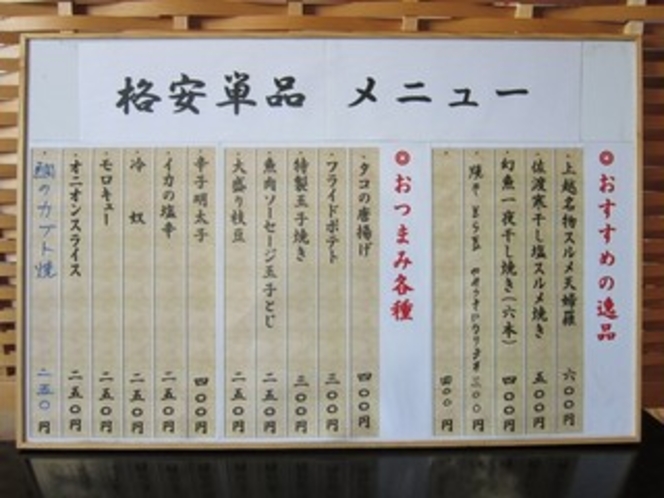 格安単品 メニュー
◎おすすめの逸品
・上越名物スルメ天婦羅 六〇〇円
・佐渡寒干し塩スルメ焼き 五〇〇円
・幻魚一夜干し焼き(六本) 四〇〇円
三〇〇円
四〇〇円
◎おつまみ各種
・タコの唐揚げ 四〇〇円
・フライドポテト 三〇〇円
・特製玉子焼き 三〇〇円
・魚肉ソーセージ玉子とじ 二五〇円
・大盛り枝豆 二五〇円
・辛子明太子 四〇〇円
・イカの塩辛 二五〇円
・冷 奴 二五〇円
・モロキュー 二五〇円
・オニオンスライス 二五〇円
・のカブト焼 二五〇円